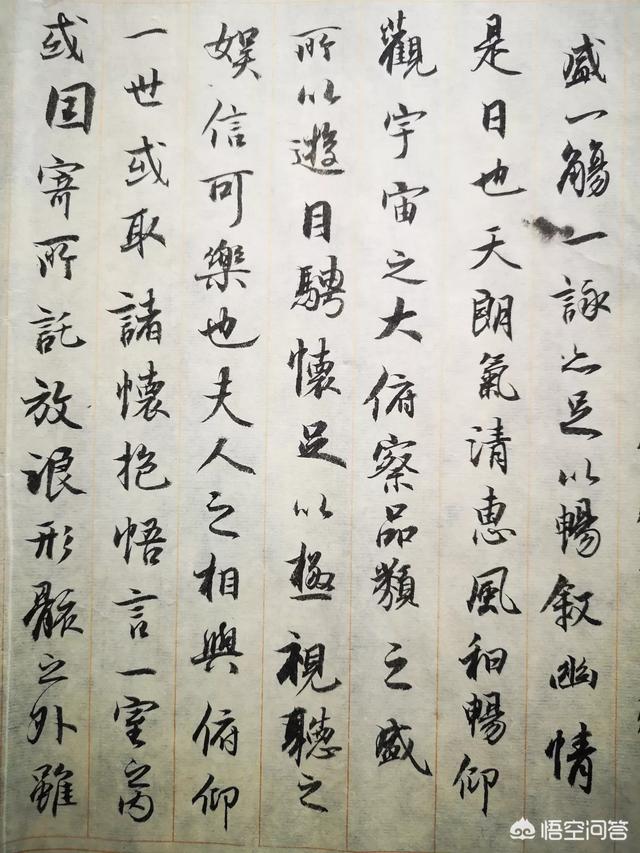 盛一觴一詠亦足以暢叙幽情
是日也天朗氣清恵風和暢仰
觀宇宙之大俯察品類之盛
所以遊目騁懷足以極視聽之
娱信可樂也夫人之相與俯仰
一世或取諸懷抱悟言一室之内
或因寄所託放浪形骸之外雖
悟空问答